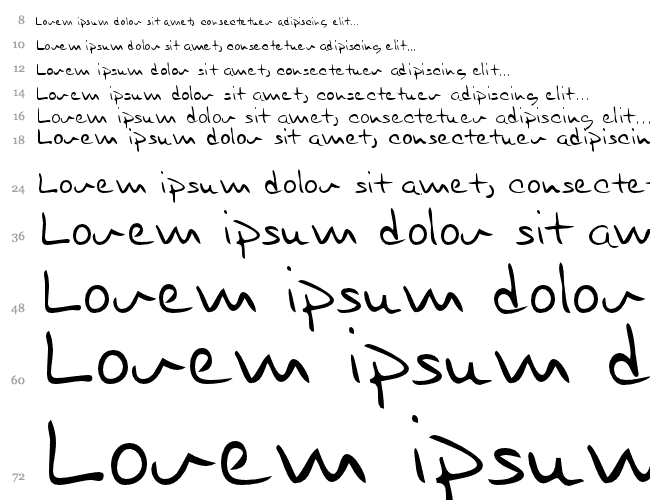 8 Lorem ipsum dolor sit amet, consectetuer adipiscing elit...
10 Lorem ipsum dolor sit amet, consectetuer adipiscing elit...
12 Lorem ipsum dolor sit amet, consectetuer adipiscing elit...
14 Lorem ipsum dolor sit amet, consectetuer adipiscing elit...
16 Lorem ipsum dolor sit amet, consectetuer adipiscing elit...
18 Lorem ipsum dolor sit amet, consectetuer adipiscin
24 Lorem ipsum dolor sit amet, consectete
36 Lorem ipsum dolor sit am
48 Lorem ipsum dolor
60 Lorem ipsum d
72 Lorem ipsum